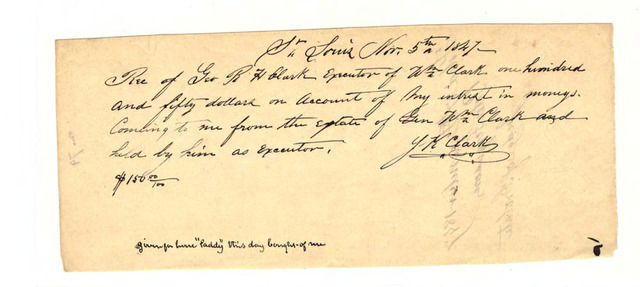 St Louis Nov. 5th 1847
Rec of Geo R H Clark Executor of Wm Clark one hundred
and fifty dollars on Account of my intrest in moneys.
Comeing to me from the Estate of Gen Wm Clark and
held by him as Executor.
J K Clark
$150 00/100
given for "Paddy" this day bought of me